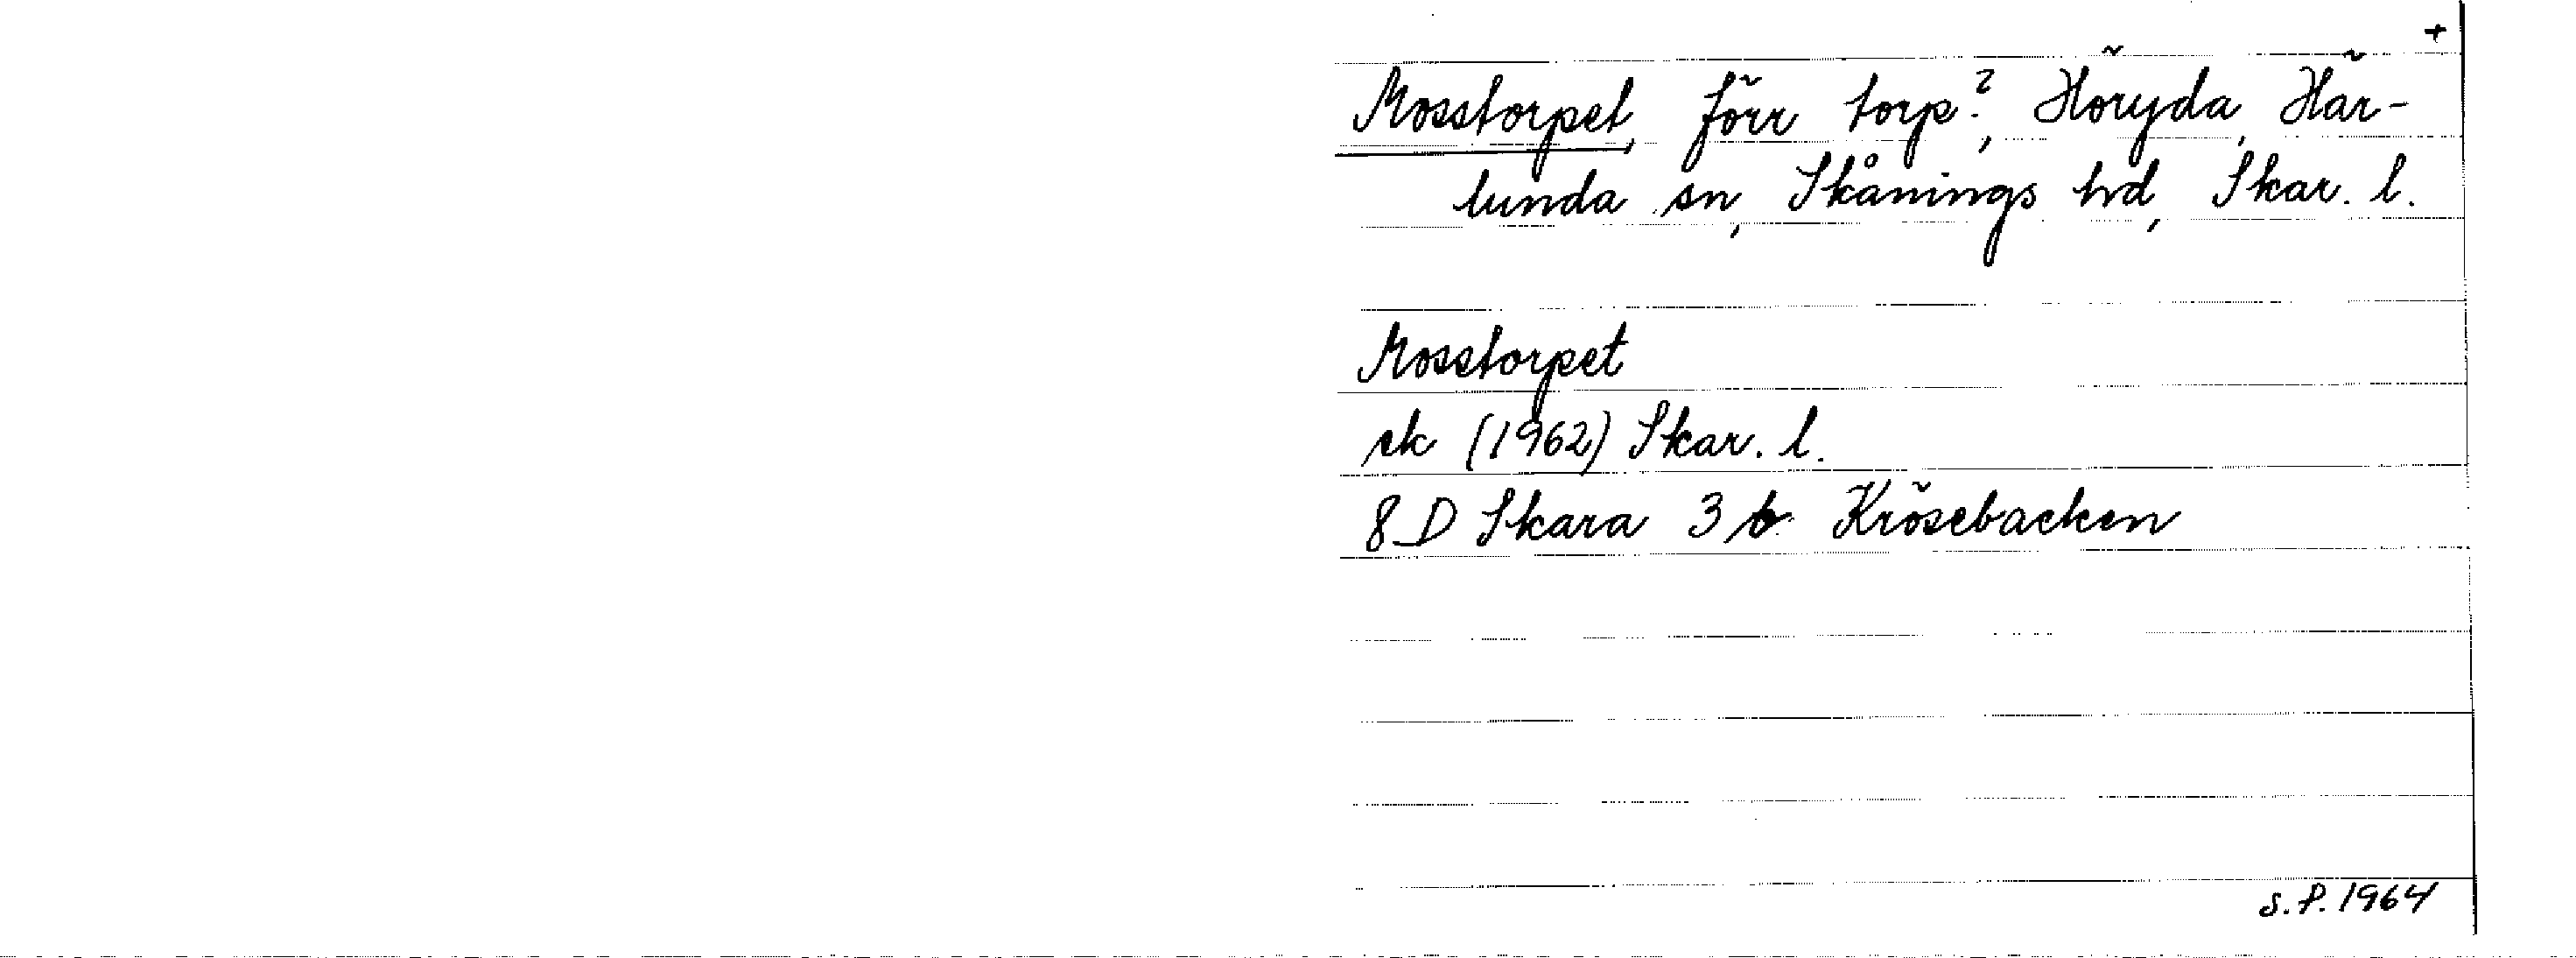 +
Mosstorpet, förr torp?, Höryda, Här-
lunda sn, Skånings hd, Skar. l.
Mosstorpet
ek (1962) Skar. l.
8 D Skara 3 b Krösebacken
S.P. 1964